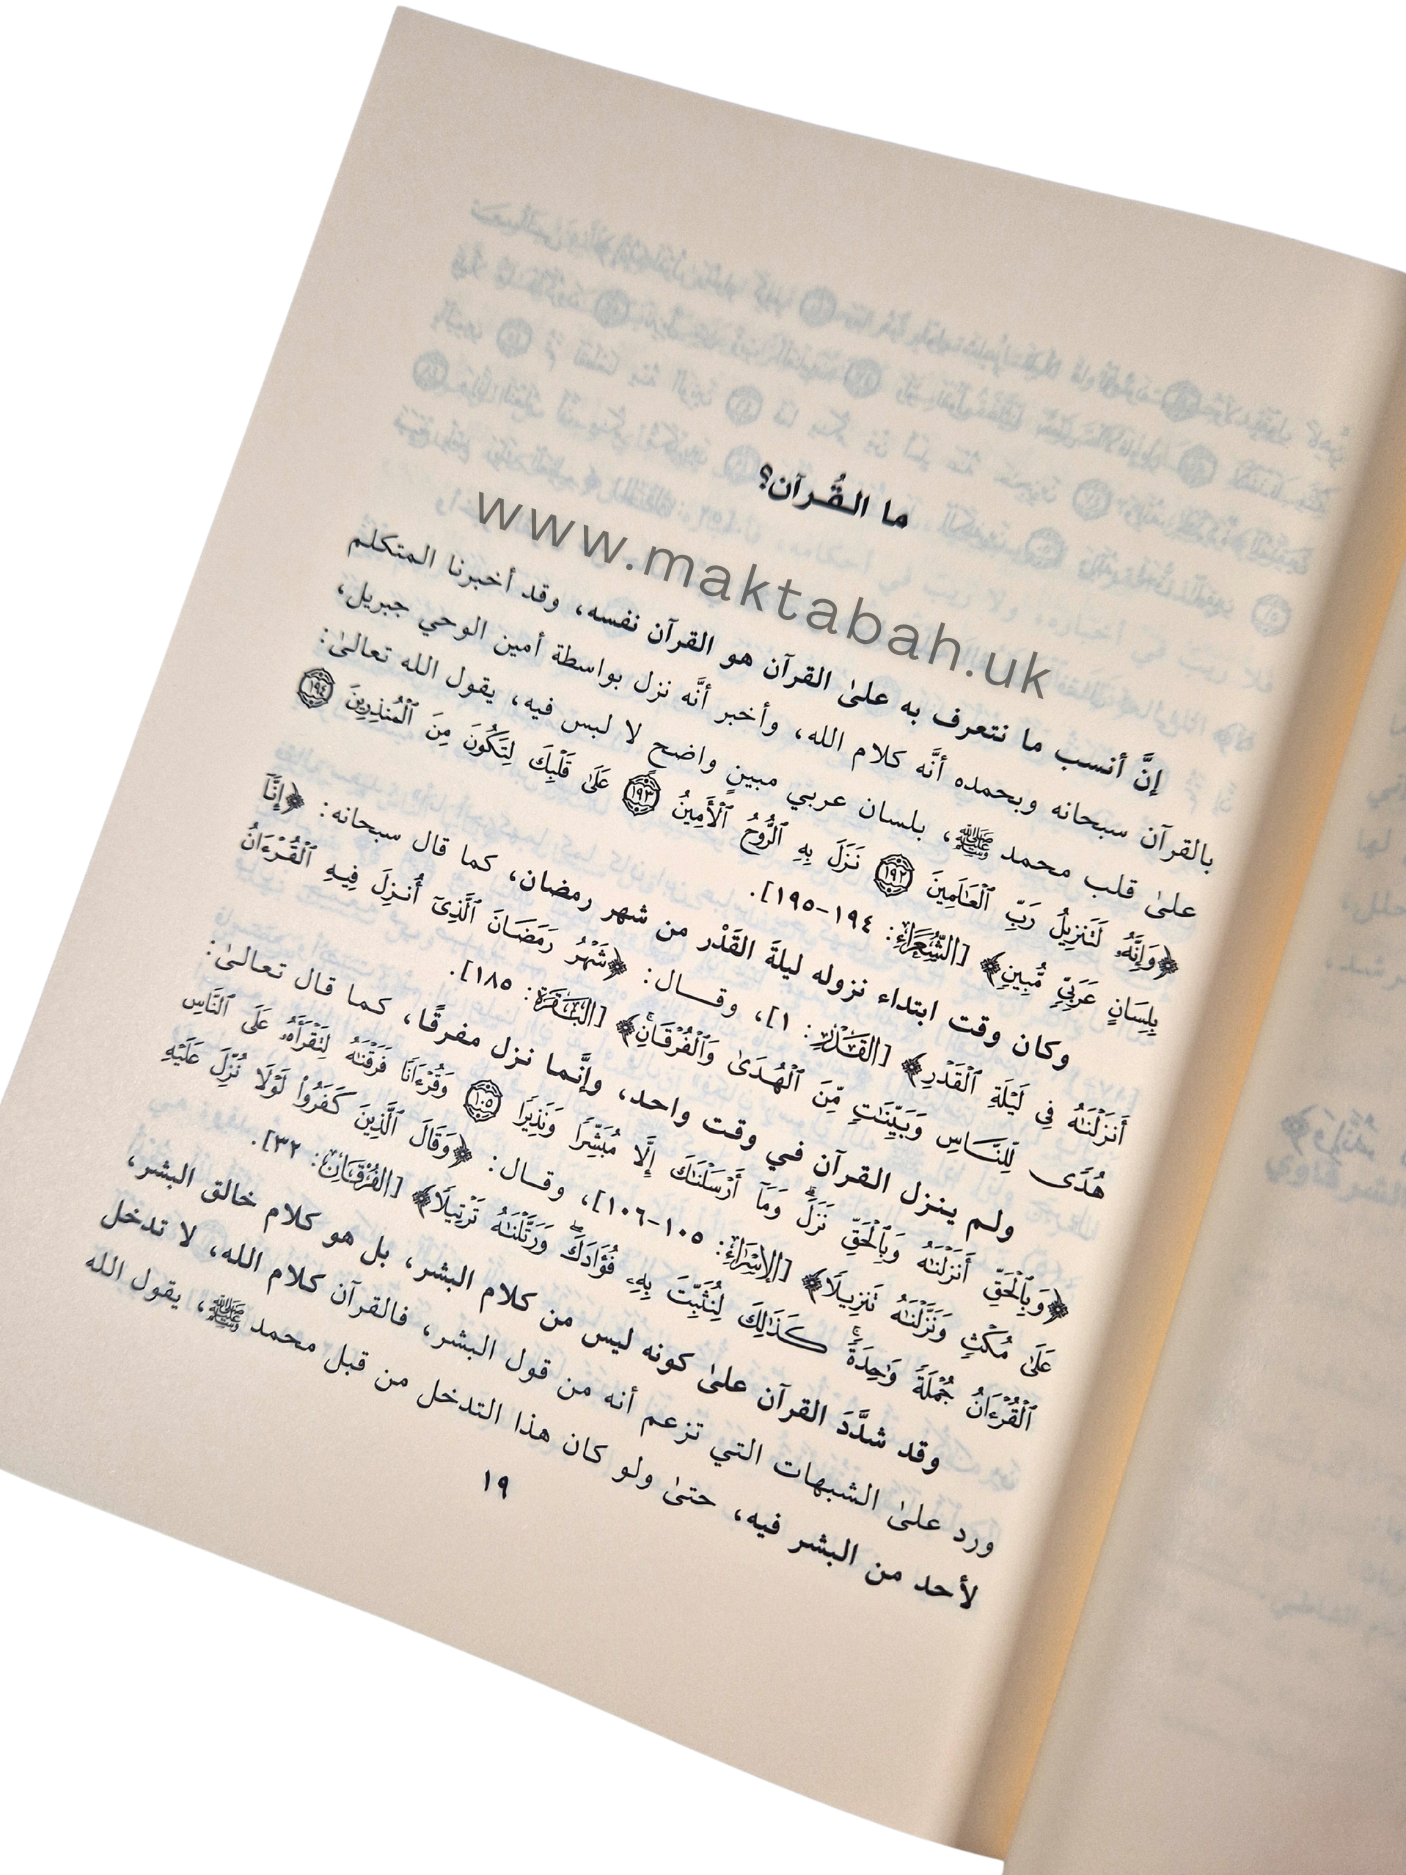 ما القُرآن؟
www.maktabah.uk
إنَّ أنسب ما نتعرف به علىٰ القرآن هو القرآن نفسه، وقد أخبرنا المتكلم
بالقرآن سبحانه وبحمده أنَّه كلام الله، وأخبر أنَّه نزل بواسطة أمين الوحي جبريل،
علىٰ قلب محمد ﷺ، بلسان عربي مبينٍ واضحٍ لا لبس فيه، يقول الله تعالىٰ:
﴿وَإِنَّهُۥ لَتَنزِيلُ رَبِّ ٱلۡعَٰلَمِينَ ١٩٢ نَزَلَ بِهِ ٱلرُّوحُ ٱلۡأَمِينُ ١٩٣ عَلَىٰ قَلۡبِكَ لِتَكُونَ مِنَ ٱلۡمُنذِرِينَ ١٩٤
بِلِسَانٍ عَرَبِيّٖ مُّبِينٖ﴾ [الشُّعَرَاءِ: ١٩٤-١٩٥].
وكان وقت ابتداء نزوله ليلةَ القَدْر من شهر رمضان، كما قال سبحانه: ﴿إِنَّآ
أَنزَلۡنَٰهُ فِي لَيۡلَةِ ٱلۡقَدۡرِ﴾ [القَدْرِ: ١]، وقـال: ﴿شَهۡرُ رَمَضَانَ ٱلَّذِيٓ أُنزِلَ فِيهِ ٱلۡقُرۡءَانُ
هُدٗى لِّلنَّاسِ وَبَيِّنَٰتٖ مِّنَ ٱلۡهُدَىٰ وَٱلۡفُرۡقَانِۚ﴾ [البَقَرَةِ: ١٨٥].
ولم ينزل القرآن في وقت واحد، وإنَّما نزل مفرقًا، كما قال تعالىٰ:
﴿وَبِٱلۡحَقِّ أَنزَلۡنَٰهُ وَبِٱلۡحَقِّ نَزَلَۗ وَمَآ أَرۡسَلۡنَٰكَ إِلَّا مُبَشِّرٗا وَنَذِيرٗا ١٠٥ وَقُرۡءَانٗا فَرَقۡنَٰهُ لِتَقۡرَأَهُۥ عَلَى ٱلنَّاسِ
عَلَىٰ مُكۡثٖ وَنَزَّلۡنَٰهُ تَنزِيلٗا﴾ [الإسْرَاءِ: ١٠٥-١٠٦]، وقـال: ﴿وَقَالَ ٱلَّذِينَ كَفَرُواْ لَوۡلَا نُزِّلَ عَلَيۡهِ
ٱلۡقُرۡءَانُ جُمۡلَةٗ وَٰحِدَةٗۚ كَذَٰلِكَ لِنُثَبِّتَ بِهِۦ فُؤَادَكَۖ وَرَتَّلۡنَٰهُ تَرۡتِيلٗا﴾ [الفُرْقَانِ: ٣٢].
وقد شدَّدَ القرآن علىٰ كونه ليس من كلام البشر، بل هو كلام خالق البشر،
ورد علىٰ الشبهات التي تزعم أنه من قول البشر، فالقرآن كلام الله، لا تدخل
لأحد من البشر فيه، حتىٰ ولو كان هذا التدخل من قبل محمد ﷺ، يقول الله
١٩